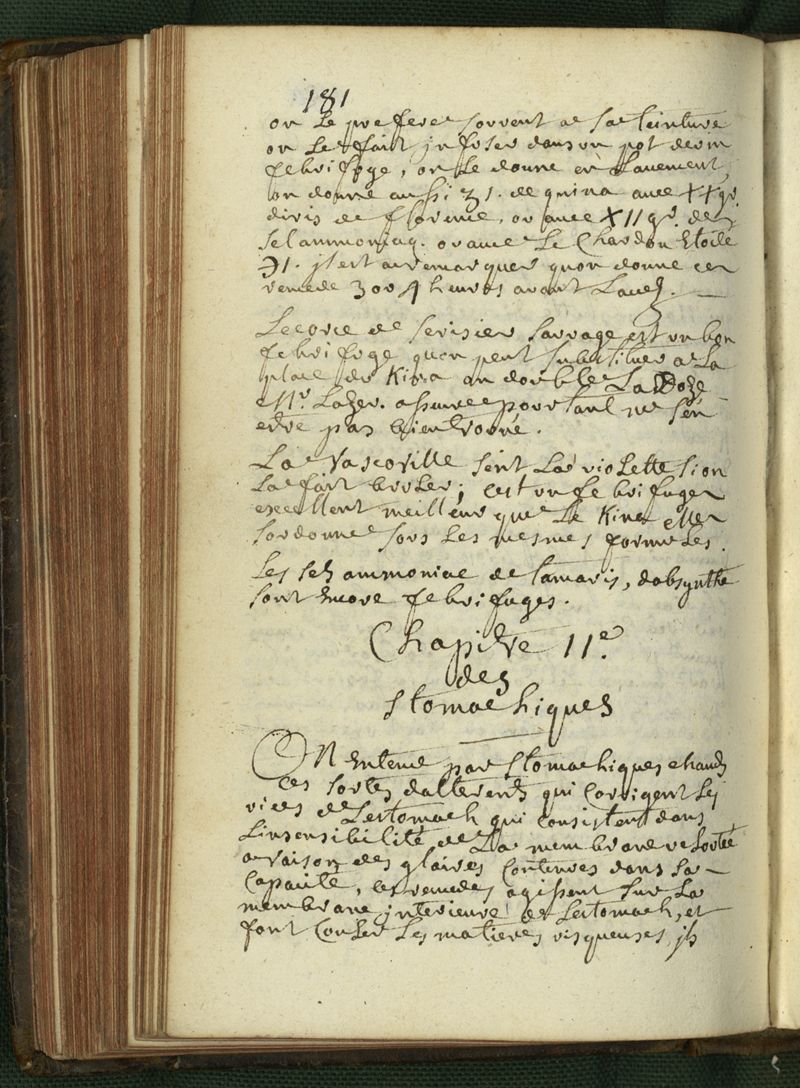 181
on Le prefere souvent a sa teinture
on Le fait jnfuser dans un pot de vin
febrifuge, on Le donne en Lavement
on donne aussi ʒ1. de quina avec ××gr.
diris de florence, ou avec ×11gr. de
sel ammoniaq. ou avec Le Chardon Etoilé
℈1. jl est a remarquer quon donne ces
remede 3 ou 4 heures avant Laces.
Lecorce de serisier sauvage est un bon
febrifuge quon peut substituer a La
place du Kina au double La Doze
Mr. Lazer. assure pourtant ne sen
etre pas bien trouvé.
La Vascoville sent La violette si on
La fait bruler; cest un febrifuge
excellent meilleur que Le Kina elle
sordonne sous Les mesmes formules.
Les sels ammoniac de tamaris, dabsynthe
sont encore febrifuges.
Chapitre 11e.
des
Stomachiques
ON Entend par stomachiques chauds
ces sortes dalterends qui Corrigent Les
vices de Lestomach qui consistent dans
Linsensibilité de La membrane veloutée
a raison des glaires Contenues dans sa
Capacité, ces remedes agissent sur La
membrane interieure de Lestomach, et
font Couler Les matieres visqueuses, jls